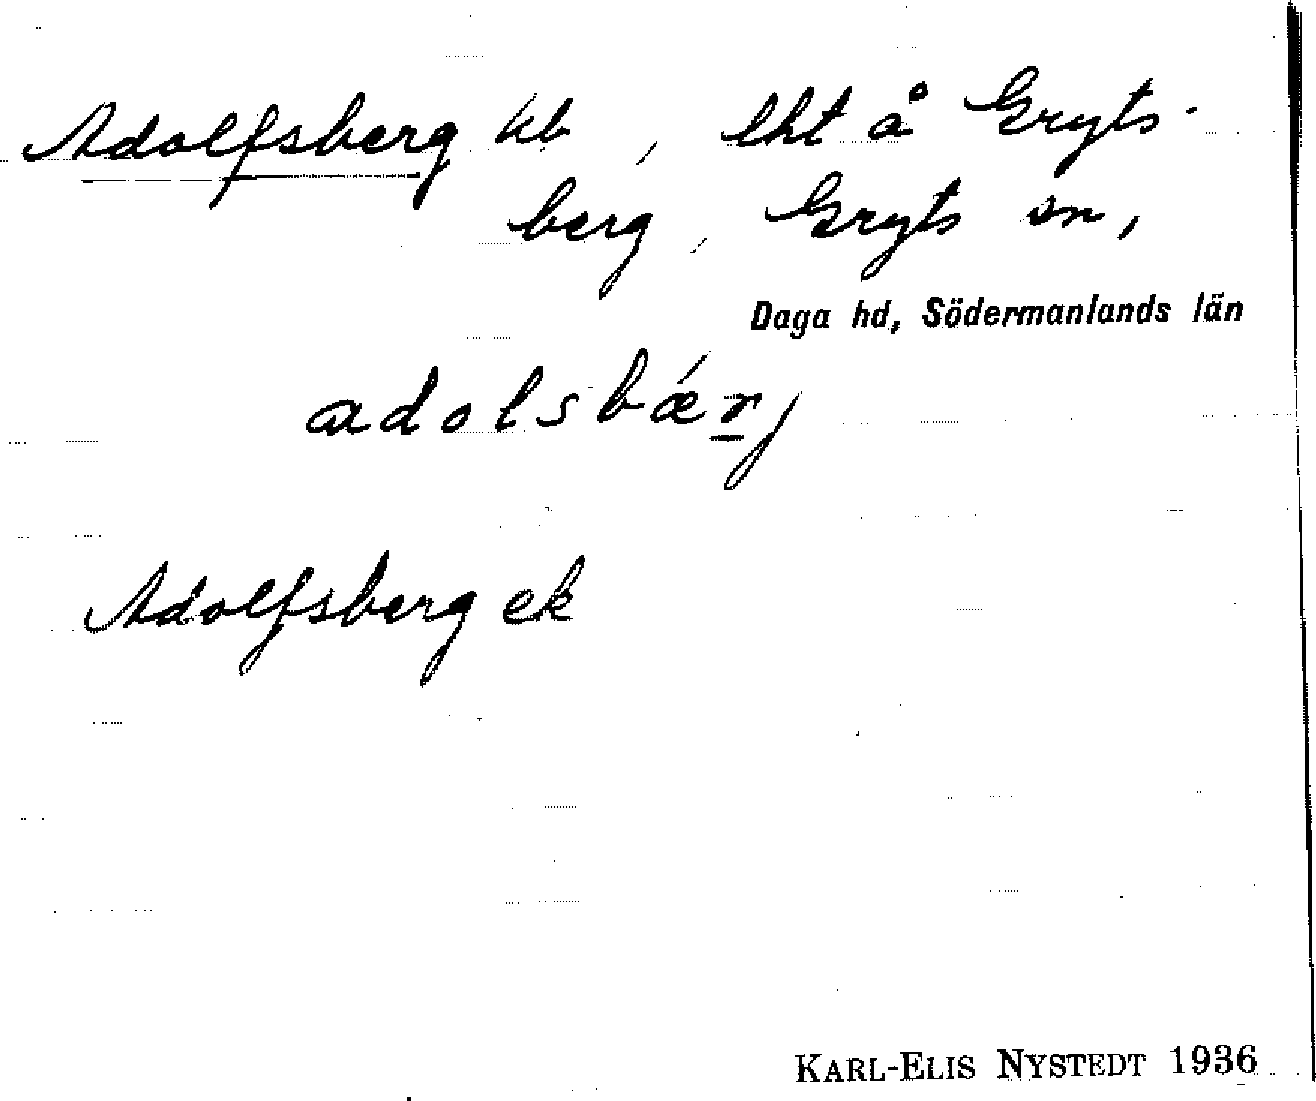 Adolfsberg lht, lht å Gryts-
berg, Gryts sn,
Daga hd, Södermanlands län
adolsbǽrj
Adolfsberg ek
KARL-ELIS NYSTEDT 1936